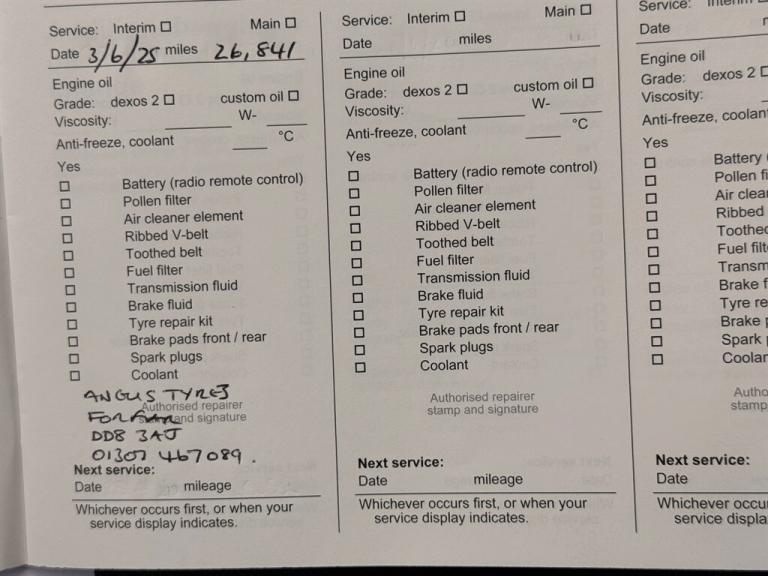 Service: Interim ☐ Main ☐
Date 3/6/25 miles 26,841
Engine oil
Grade: dexos 2 ☐ custom oil ☐
Viscosity: W-
Anti-freeze, coolant °C
Yes
☐ Battery (radio remote control)
☐ Pollen filter
☐ Air cleaner element
☐ Ribbed V-belt
☐ Toothed belt
☐ Fuel filter
☐ Transmission fluid
☐ Brake fluid
☐ Tyre repair kit
☐ Brake pads front / rear
☐ Spark plugs
☐ Coolant
ANGUS TYRES
Authorised repairer
FORFAR
stamp and signature
DD8 3AJ
01307 467089.
Next service:
Date mileage
Whichever occurs first, or when your
service display indicates.
Service: Interim ☐ Main ☐
Date miles
Engine oil
Grade: dexos 2 ☐ custom oil ☐
Viscosity: W-
Anti-freeze, coolant °C
Yes
☐ Battery (radio remote control)
☐ Pollen filter
☐ Air cleaner element
☐ Ribbed V-belt
☐ Toothed belt
☐ Fuel filter
☐ Transmission fluid
☐ Brake fluid
☐ Tyre repair kit
☐ Brake pads front / rear
☐ Spark plugs
☐ Coolant
Authorised repairer
stamp and signature
Next service:
Date mileage
Whichever occurs first, or when your
service display indicates.
Service: Interim
Date
Engine oil
Grade: dexos 2 ☐
Viscosity:
Anti-freeze, coolan
Yes
☐ Battery
☐ Pollen fi
☐ Air clea
☐ Ribbed
☐ Toothe
☐ Fuel filt
☐ Transm
☐ Brake f
☐ Tyre re
☐ Brake p
☐ Spark
☐ Coolar
Autho
stamp
Next service:
Date
Whichever occu
service displa